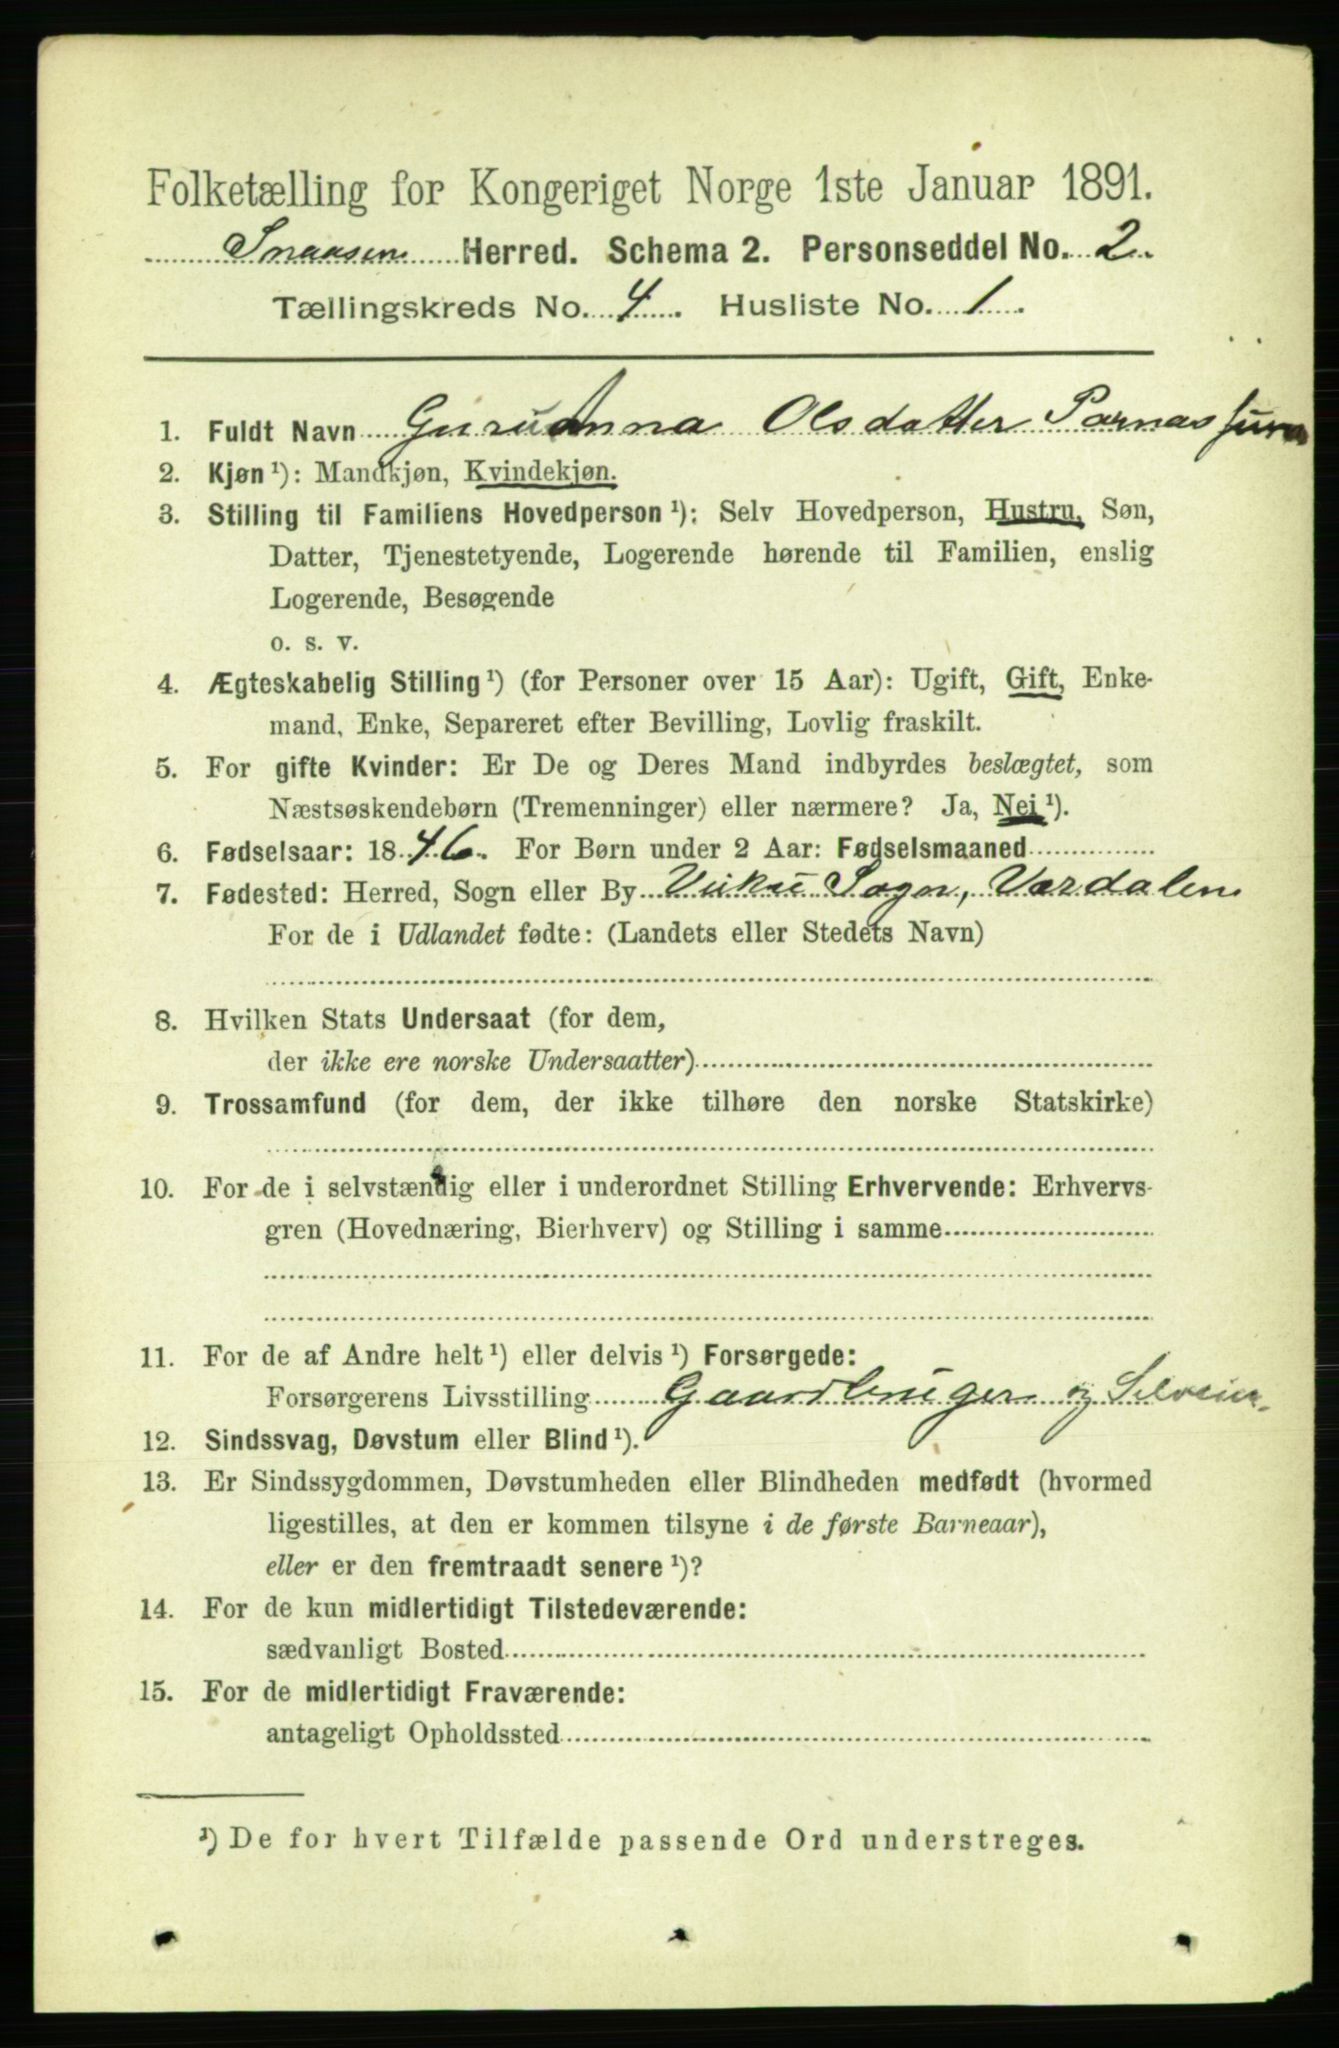 Folketælling for Kongeriget Norge 1ste Januar 1891.
Snaasen Herred. Schema 2. Personseddel No. 2.
Tællingskreds No. 4. Husliste No. 1.
1. Fuldt Navn Guruanna Olsdatter Parnas
2. Kjøn ¹): Mandkjøn, Kvindekjøn.
3. Stilling til Familiens Hovedperson ¹): Selv Hovedperson, Hustru, Søn,
Datter, Tjenestetyende, Logerende hørende til Familien, enslig
Logerende, Besøgende
o. s. v.
4. Ægteskabelig Stilling ¹) (for Personer over 15 Aar): Ugift, Gift, Enke-
mand, Enke, Separeret efter Bevilling, Lovlig fraskilt.
5. For gifte Kvinder: Er De og Deres Mand indbyrdes beslægtet, som
Næstsøskendebørn (Tremenninger) eller nærmere? Ja, Nei ¹).
6. Fødselsaar: 1846. For Børn under 2 Aar: Fødselsmaaned
7. Fødested: Herred, Sogn eller By Vuku Sogn, Værdalen
For de i Udlandet fødte: (Landets eller Stedets Navn)
8. Hvilken Stats Undersaat (for dem,
der ikke ere norske Undersaatter)
9. Trossamfund (for dem, der ikke tilhøre den norske Statskirke)
10. For de i selvstændig eller i underordnet Stilling Erhvervende: Erhvervs-
gren (Hovednæring, Bierhverv) og Stilling i samme
11. For de af Andre helt ¹) eller delvis ¹) Forsørgede:
Forsørgerens Livsstilling Gaardbruger og Selveier.
12. Sindssvag, Døvstum eller Blind ¹).
13. Er Sindssygdommen, Døvstumheden eller Blindheden medfødt (hvormed
ligestilles, at den er kommen tilsyne i de første Barneaar),
eller er den fremtraadt senere ¹)?
14. For de kun midlertidigt Tilstedeværende:
sædvanligt Bosted
15. For de midlertidigt Fraværende:
antageligt Opholdssted
¹) De for hvert Tilfælde passende Ord understreges.